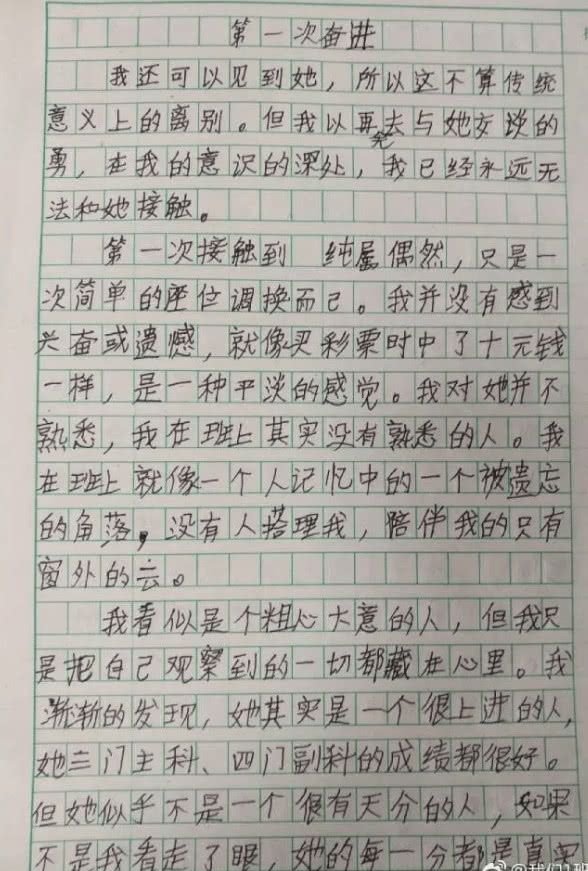 第一次奋进
我还可以见到她，所以这不算传统
意义上的离别。但我以再去与她交谈的
勇，在我的意识的深处，我已经永远无
法和她接触。
第一次接触到 纯属偶然，只是一
次简单的座位调换而己。我并没有感到
兴奋或遗憾，就像买彩票时中了十元钱
一样，是一种平淡的感觉。我对她并不
熟悉，我在班上其实没有熟悉的人。我
在班上就像一个人记忆中的一个被遗忘
的角落，没有人搭理我，陪伴我的只有
窗外的云。
我看似是个粗心大意的人，但我只
是把自己观察到的一切都藏在心里。我
渐渐的发现，她其实是一个很上进的人，
她三门主科、四门副科的成绩都很好。
但她似乎不是一个很有天分的人，如果
不是我看走了眼，她的每一分都是真实
@我们1班